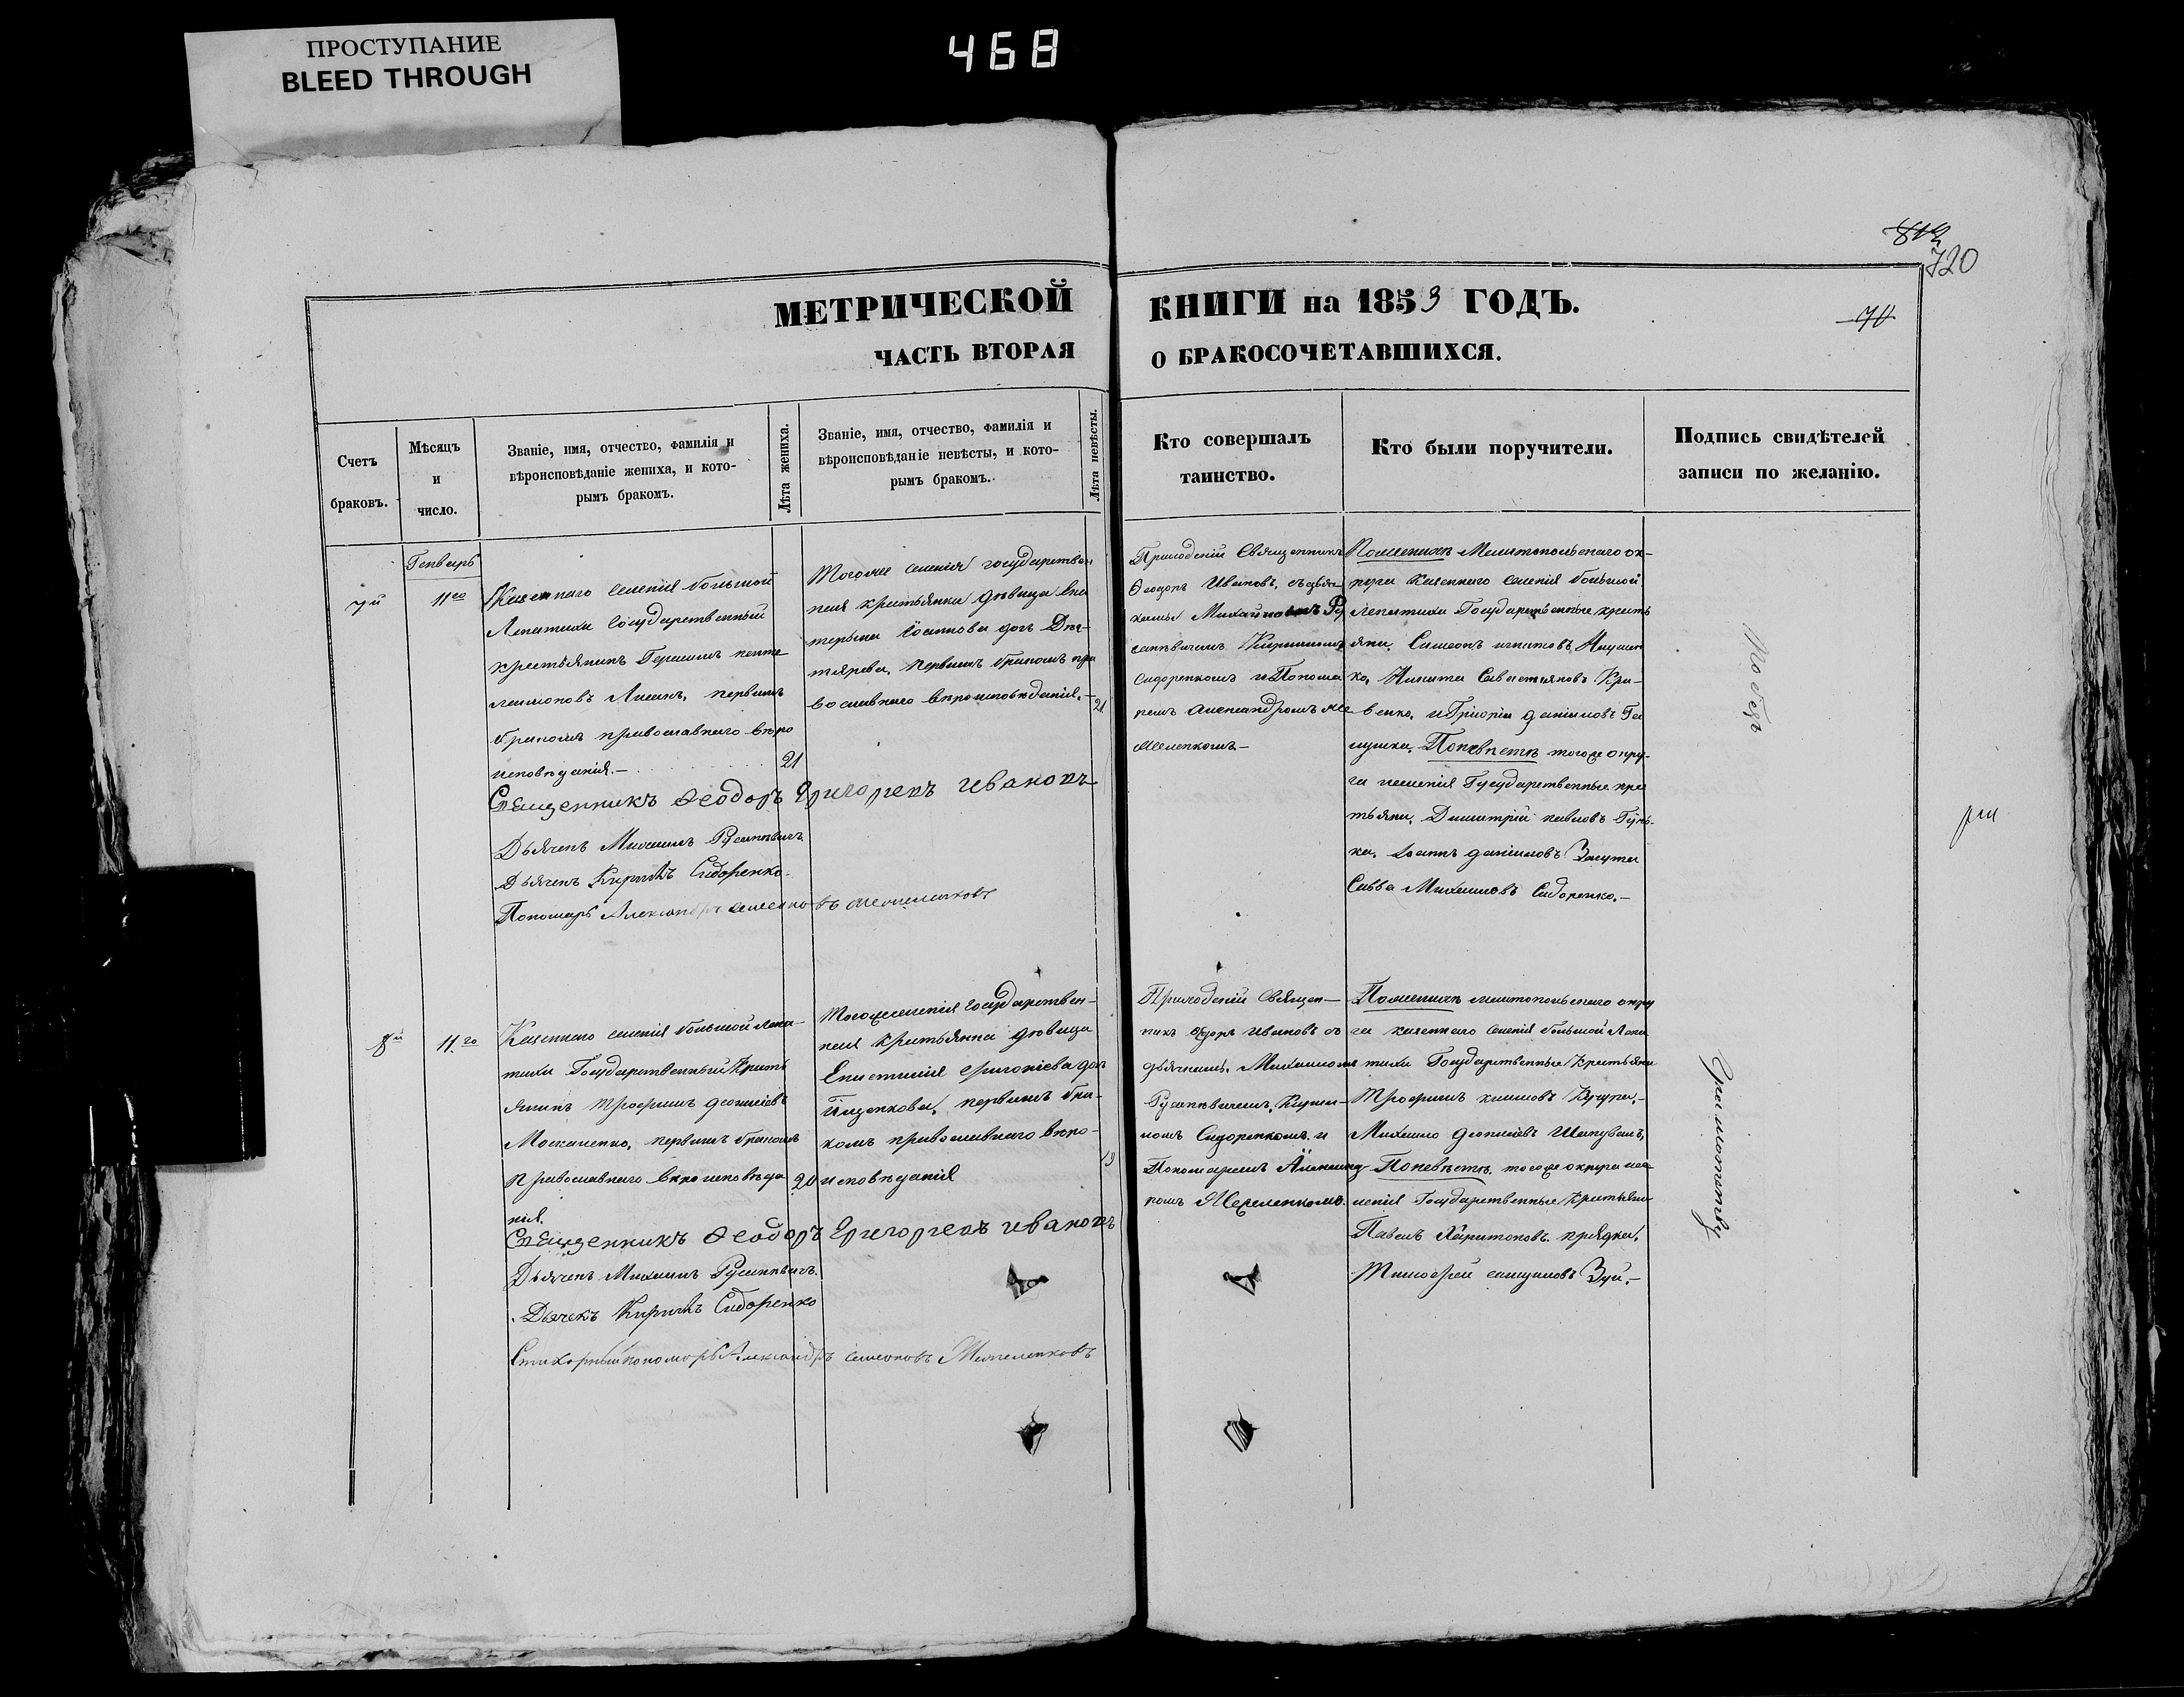 ПРОСТУПАНИЕ
BLEED THROUGH
468
813
720
70
МЕТРИЧЕСКОЙ КНИГИ на 1853 ГОДЪ.
ЧАСТЬ ВТОРАЯ О БРАКОСОЧЕТАВШИХСЯ.
Счетъ
браковъ.
Мѣсяцъ
и
число.
Званіе, имя, отчество, фамилія и
вѣроисповѣданіе жениха, и кото-
рымъ бракомъ.
Лѣта жениха.
Званіе, имя, отчество, фамилія и
вѣроисповѣданіе невѣсты, и кото-
рымъ бракомъ.
Лѣта невѣсты.
Кто совершалъ
таинство.
Кто были поручители.
Подпись свидѣтелей
записи по желанію.
Генварь
7й
11го
Казеннаго селенія большой
Лепатихи Государственный
крестьянинъ Герасимъ
первымъ
бракомъ православнаго вѣро
исповѣданія.
21
Тогоже селенія государствен
ная крестьянка дѣвица Ека
терина Іоаннова дочь Дег-
тярева, первымъ бракомъ пра
вославнаго вѣроисповѣданія.
21
Приходскій Священникъ
Ѳеодоръ Ивановъ, съ дьяч
ками Михаиломъ Ру
санѣвичемъ, Кирилломъ
Сидоренкомъ и Понома
ремъ Александромъ Ме
Поженихѣ Мелитопольскаго ок-
руги Казеннаго селенія большой
Лепатихи Государственные кресть
яне, Симеонъ
ка, Никита Севастьяновъ Кри-
венко, и Григорій Даніиловъ Га
лушка, Поневѣстѣ тогоже окру-
ги селенія Государственные крес
тьяне, Димитрій Павловъ Гунь-
ка, Іоаннъ Даніиловъ
Савва Михаиловъ Сидоренко.
Священникъ Ѳеодоръ Григорьевъ Ивановъ
Дьячекъ Михаилъ Русанѣвичъ
Дьячекъ Кириллъ Сидоренко
Пономарь Александръ Семеновъ
8й
11го
Казеннаго селенія большой Лепа-
тихи Государственный Кресть
янинъ Трофимъ Деонисіевъ
Москаленко, первымъ бракомъ
православнаго вѣроисповѣда
нія.
20
Тогожеселенія Государствен-
ная Крестьянка дѣвица
Епистимія Григоріева доч
Ященкова, первымъ бра-
комъ православнаго вѣро-
исповѣданія
19
Приходскій Священ-
никъ Ѳеодоръ Ивановъ съ
дьячками, Михаиломъ
Русанѣвичемъ, Кирил-
ломъ Сидоренкомъ и
Пономаремъ Александ
ромъ
Поженихѣ мелитопольскаго окру
ги казеннаго селенія большой Лепа
тихи Государственные Крестьяне
Трофимъ Климовъ
Михаилъ Деонисіевъ Шаповалъ,
Поневѣстѣ, тогоже округа се
ленія Государственные Крестьяне
Павелъ Харитоновъ Прядка,
Тимофей Самуиловъ Зуй.
Священникъ Ѳеодоръ Григорьевъ Ивановъ
Дьячекъ Михаилъ Русанѣвичъ.
Дьячекъ Кириллъ Сидоренко
Стихарный пономарь Александръ Симеоновъ